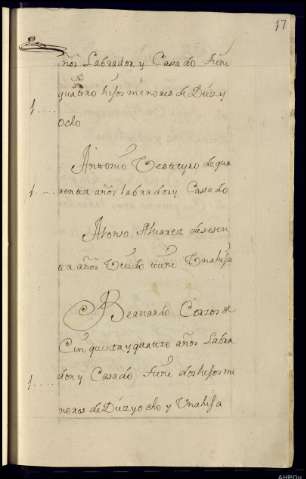 17
años Labrador y Casado tiene
quatro hijos menores de Diez y
1....
ocho
Antonio Texeyro de qua
1.... renta años labrador y Casado
Alonso Alvarez de sesen
ta años Viudo tiene Una hija
Bernardo
Cinquenta y quatro años Labra
1.... dor y Casado tiene dos hijos me
nores de Diez y ocho y Una hija